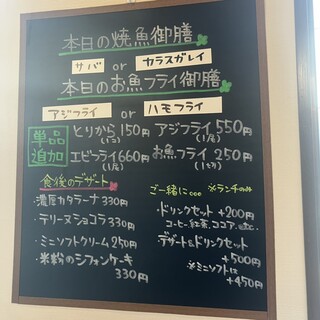 本日の焼魚御膳
サバ or カラスガレイ
本日のお魚フライ御膳
アジフライ or ハモフライ
単品追加
とりから150円(1コ) アジフライ550円(1尾)
エビフライ660円(1尾) お魚フライ250円(1切)
食後のデザート
・濃厚カタラーナ330円
・テリーヌショコラ330円
・ミニソフトクリーム250円
・米粉のシフォンケーキ
330円
ご一緒に… ※ランチのみ
・ドリンクセット+200円
コーヒー、紅茶、ココア、etc.
・デザート&ドリンクセット
+500円
※ミニソフトは
+450円